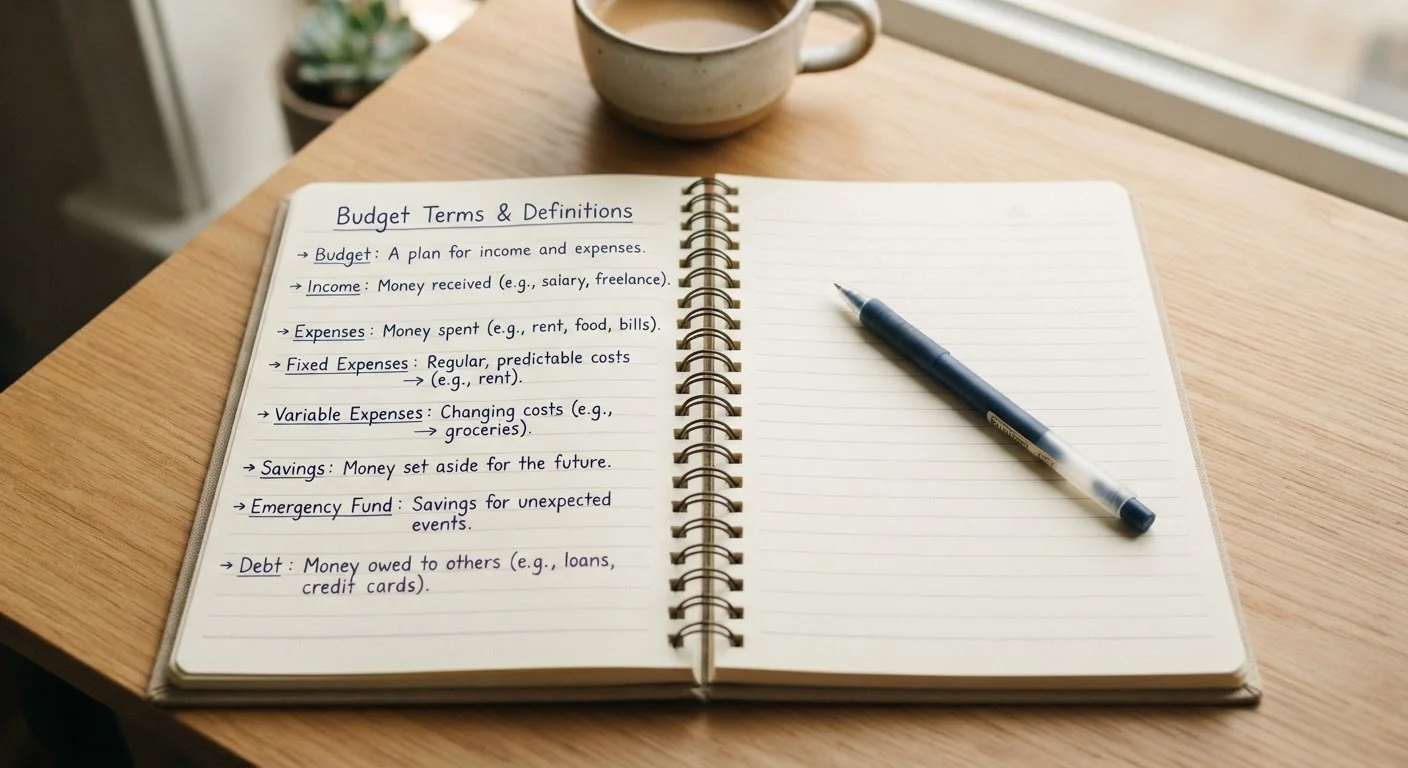 Budget Terms & Definitions
→ Budget: A plan for income and expenses.
→ Income: Money received (e.g., salary, freelance).
→ Expenses: Money spent (e.g., rent, food, bills).
→ Fixed Expenses: Regular, predictable costs
→ (e.g., rent).
→ Variable Expenses: Changing costs (e.g.,
→ groceries).
→ Savings: Money set aside for the future.
→ Emergency Fund: Savings for unexpected
events.
→ Debt: Money owed to others (e.g., loans,
credit cards).